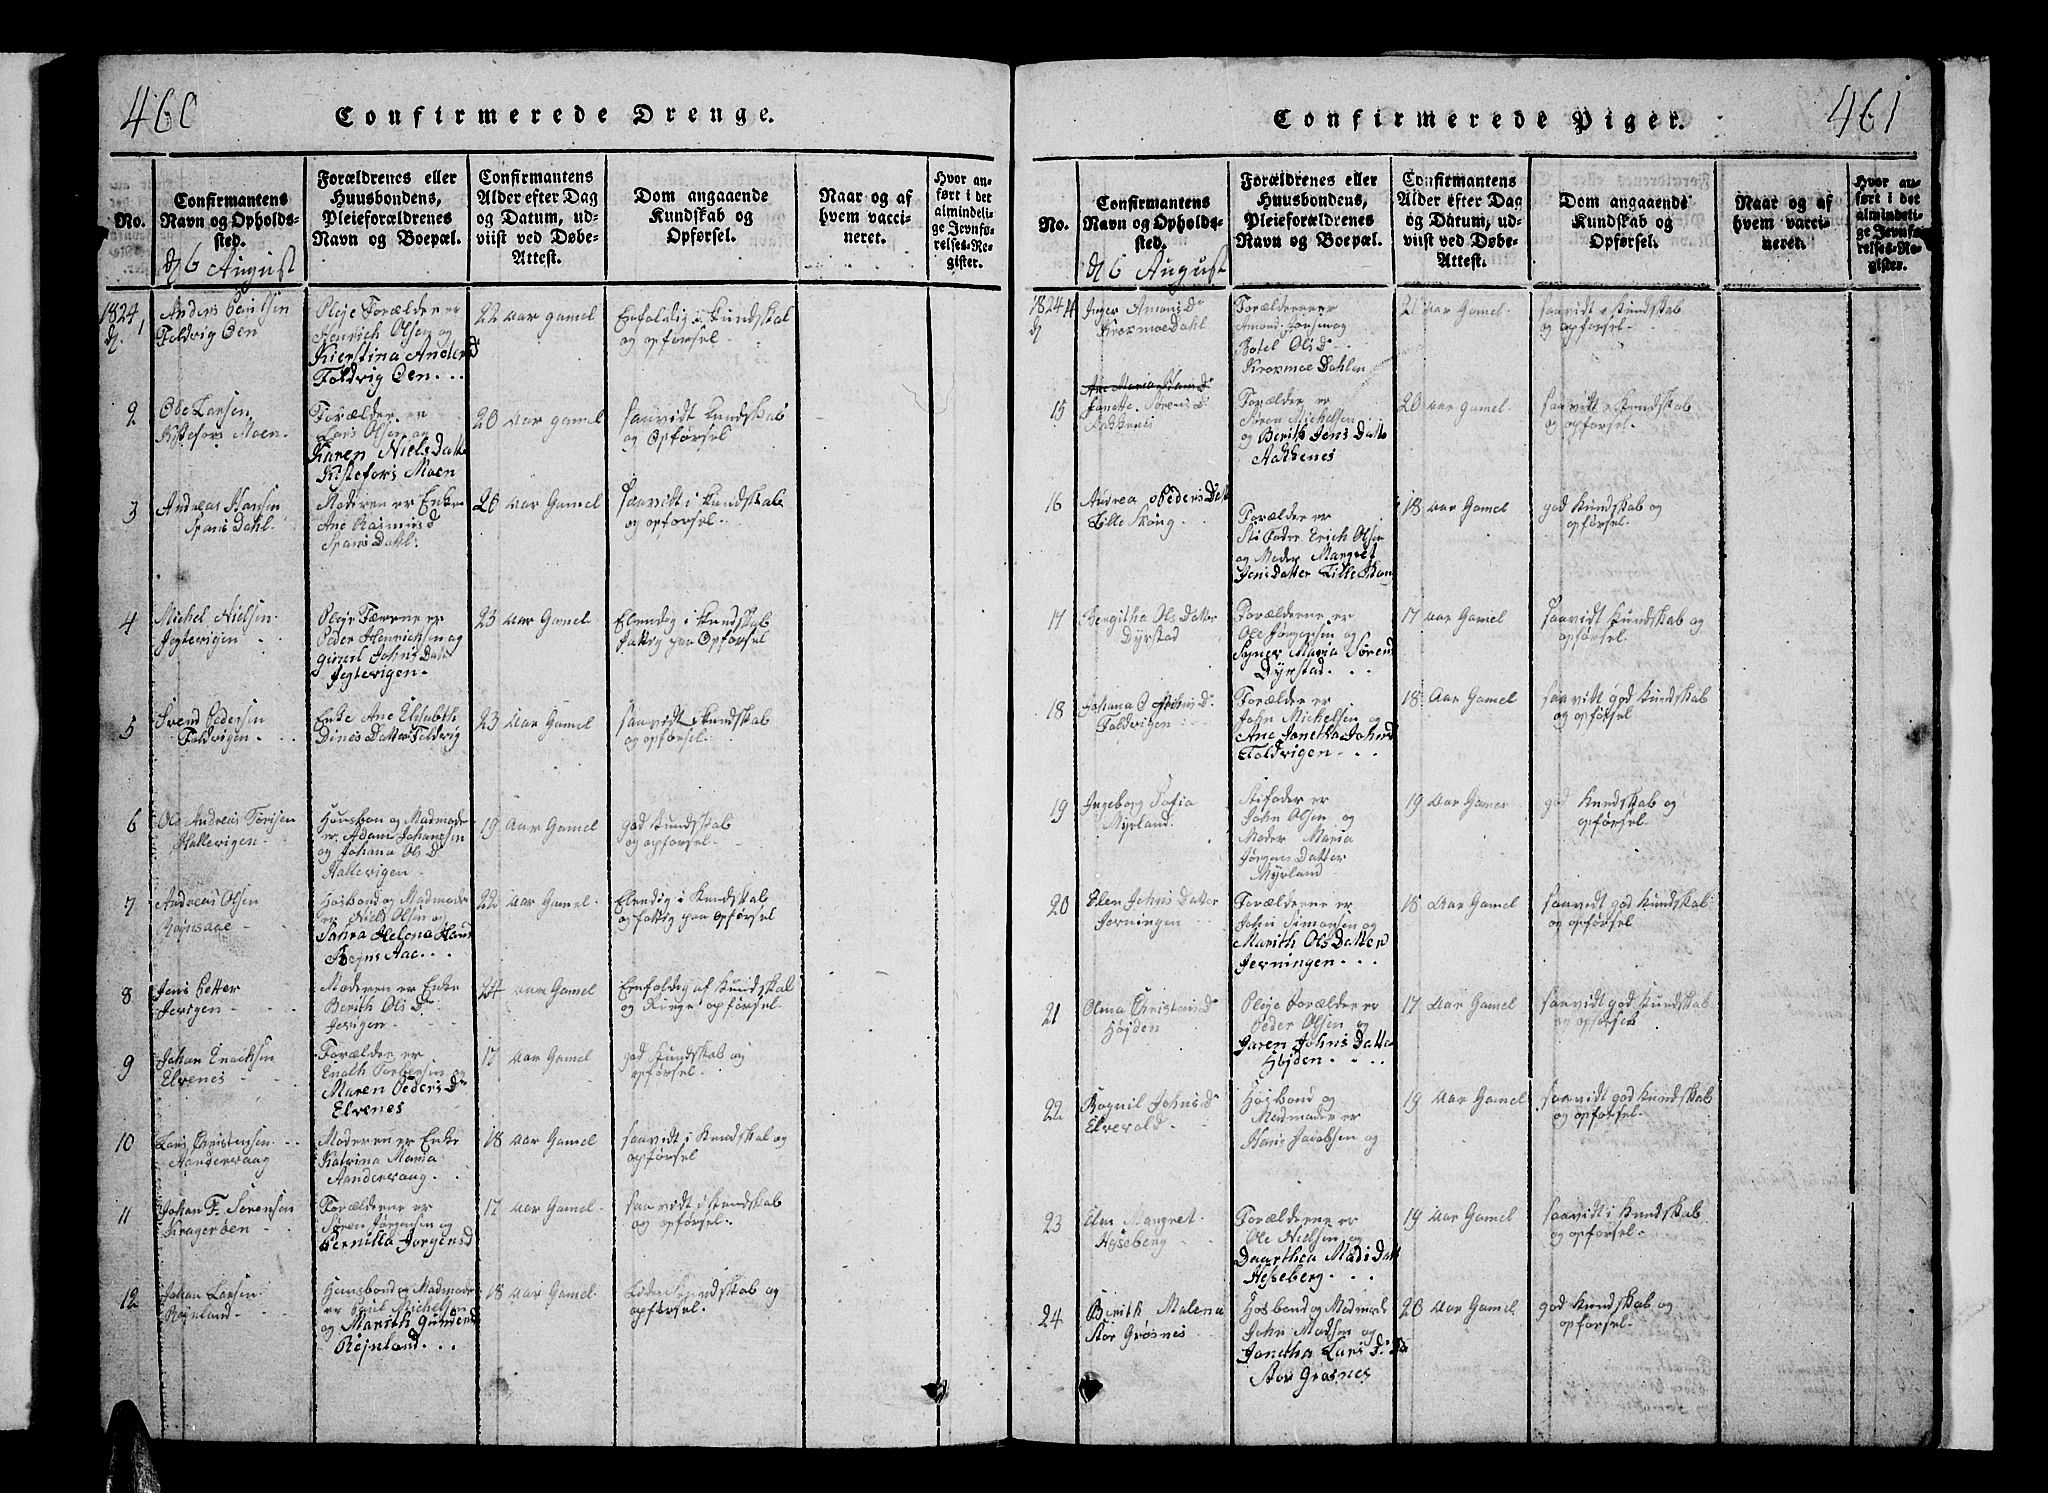 460
Confirmerede Drenge.
No.
Confirmantens
Navn og Opholds-
sted.
Forældrenes eller
Huusbondens,
Pleieforældrenes
Navn og Boepæl.
Confirmantens
Alder efter Dag
og Datum, ud-
viist ved Døbe-
Attest.
Dom angaaende
Kundskab og
Opførsel.
Naar og af
hvem vacci-
neret.
Hvor an-
ført i det
almindeli-
ge Jevnfø-
relses-Re-
gister.
d 6 August
1824
d.
1
Anders
Foldvig Øen
Pleje Forælder er
Henrich Olsen og
Kierstina Anders d
Foldvig Øen
22 Aar gamel
Eenfoldig i Kundskab
og opførsel
2
Ole Larsen
Kistefors Moen
Forælder er
Lars Olsen og
Karen Niels Datter
Kistefors Moen
20 Aar gamel
saavidt Kundskab
og Opførsel
3
Andreas Hansen
Spans Dahl
Moderen er Enke
Ane Rasmus d
Spans Dahl
20 Aar Gamel
saavidt i Kundskab
og opførsel
4
Michel Nielsen
Jegtevigen
Peder Henrichsen og
Guril Johns Datt
Jegtevigen
23 Aar Gamel
Elendig i Kundskab
fattig paa Opførsel
5
Svend Pedersen
Foldvigen
Enke Ane Elisabeth
Dines Datter Foldvig
23 Aar Gamel
saavidt Kundskab
og opførsel
6
Ole Andreas
Hallevigen
Huusbon og Madmoder
er Adam Johansen
og Johana Ols D
Hallevigen
19 Aar Gamel
god Kundskab
og opførsel
7
Andreas Olsen
Røjnsaae
Hosbond og Madmoder
er Niels Olsen og
Helena Hans
Rojns Aae
22 Aar Gamel
Elendig i Kundskab
og fattig paa Opførsel
8
Jens Petter
Jevigen
Moderen er Enke
Berith Ols D
Jevigen
24 Aar Gamel
Eenfoldig af Kundskab
og Ringe opførsel
9
Johan
Elvenes
Forælder er
Maren Peders D
Elvenes
17 Aar Gamel
god Kundskab og
opførsel
10
Lars Christensen
Aandervaag
Moderen er Enke
Katrina Maria
Aandervaag
18 Aar Gamel
saavidt i Kundskab og
opførsel
11
Johan F. Sørensen
Kragerøen
Forælderne er
Søren Jørgensen og
Pernilla Jørgens d
17 Aar Gamel
saavidt i Kundskab
og opførsel
12
Johan Larsen
Røjnland
Huusbond og Madmoder
er Poul Michelsen
og Marith Gunders
Røjnland
18 Aar Gamel
Kundskab og
opførsel
461
Confirmerede Piger.
No.
Confirmantens
Navn og Opholds-
sted.
Forældrenes eller
Huusbondens,
Pleieforældrenes
Navn og Boepæl.
Confirmantens
Alder efter Dag
og Datum, ud-
viist ved Døbe-
Attest.
Dom angaaende
Kundskab og
Opførsel.
Naar og af
hvem vacci-
neret.
Hvor an-
ført i det
almindeli-
ge Jevnfø-
relses-Re-
gister.
d 6 August
1824
d
14
Inger Amons D
Kroxmoe Dahl
Forælderne er
Amond og
Botel Ols D
Kroxmoe Dahlen
21 Aar Gamel
saavidt Kundskab
og opførsel
15
Janette Sørens D
Aakkenes
Forælder er
Søren Michelsen
og Berith Jens Datt
Aakkenes
20 Aar gamel
saavidt Kundskab
og opførsel
16
Andrea Peders Dat
Lille Skong
Forælder er
Sti Fader Erich Olsen
og Moder Margret
Jens Datter Lille
18 Aar Gamel
god Kundskab og
opførsel
17
Bergitha Ols Datter
Dyrstad
Forælderne er
Ole Jørgensen og
Maria Sørens
Dyrstad
17 Aar Gamel
saavidt Kundskab og
opførsel
18
Johana
Foldvigen
Forælder er
John Michelsen og
Ane Janetha Johns
Foldvigen
18 Aar Gamel
saavidt god Kundskab
og opførsel
19
Ingeborg Sofia
Myrland
Stifader er
John Olsen og
Moder Maria
Jørgens Datter
Myrland
19 Aar Gamel
god Kundskab og
opførsel
20
Elen Johns Datter
Jevningen
Forælderne er
John Simonsen og
Marith Ols Datter
Jevningen
18 Aar Gamel
saavidt god Kundskab
og opførsel
21
Olma Christens d
Højden
Pleje Forælder er
Peder Olsen og
Karen Johns Datter
Højden
17 Aar Gamel
saavidt god Kundskab
og opførsel
22
Rognil Johns d
Elvevold
Hosbond og
Madmoder er
Hans Jacobsen og
19 Aar Gamel
saavidt god Kundskab
og opførsel
23
Elen Margret
Hesseberg
Forælderne er
Ole Nielsen og
Daarthea Mads Datt
Hesseberg
19 Aar Gamel
saavidt i Kundskab
og opførsel
24
Berith Malena
Stor Grosnes
Hosbond og Madmoder
John Madsen og
Janetha Lars D
Stor Grosnes
20 Aar Gamel
god Kundskab og
opførsel